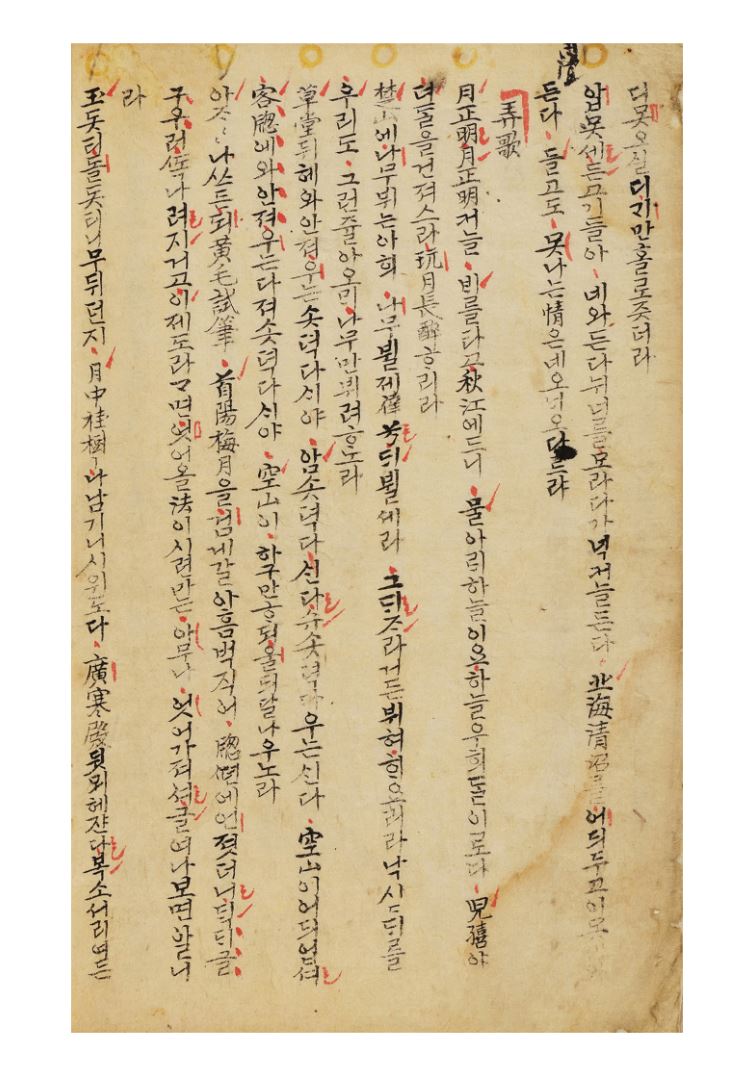 디 못오길 디기만 홀로 즛더라
압못세 든 고기들아 네와 든다 뉘 너를 모라다가 넉커늘 든다 北海清沼를 어듸 두고 이 못
든다 들고도 못나는 情은 네오 닉오 다르랴
弄歌
月正明月正明커늘 비를 타고 秋江에 드니 물 아릐 하늘이오 하늘 우희 돌이로다 兒禧야
뎌 돌을 건져스라 玩月長醉ᄒᆞ리라
楚山에 나무 뷔는 아희 나무 뷜 제 힝 혀 뒤 뷜세라 그 뒤 즈라거든 뷔혀 희오리라 낙시ㅅ뒤를
우리도 그런 쥴 아오믜 나무만 뷔려 ᄒᆞ노라
草堂 뒤헤 와 안져 우는 솟뎍다시야 암솟뎍다신다 슈솟뎍다 우는 신다 空山이 어듸 업셔
客牕에 와 안져 우는다 져 솟뎍다시야 空山이 하구만ᄒᆞ되 울듸 달나 우노라
아즈나 쓰든 되 黃毛試筆 首陽梅月을 검게 갈아 흠벅 직어 牕변에 언졋더니 듸디글
구우러 쑥 나려지거고 이제 도라가면 엇어올 法이 시련만은 아무나 엇어 가져셔 글여나 보면 알니
라
玉돗티 돌돗티 니 무듸던지 月中桂樹나 남기니 시위도다 廣寒殿 뒷뫼헤 쟌다복소서리여든